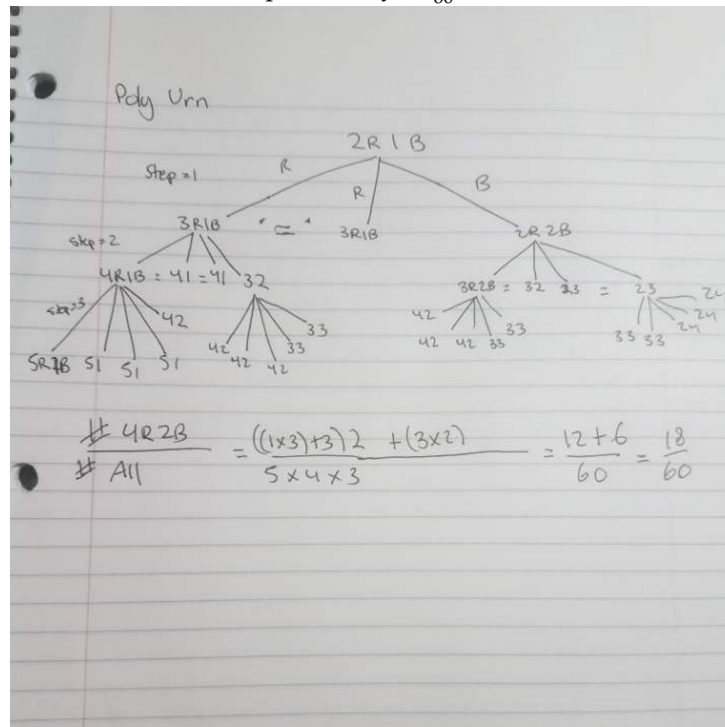 Poly Urn
2R 1 B
Step = 1 R R B
3R1B " = " 3R1B 2R 2B
step = 2
4R1B = 41 = 41 32 3R2B = 32 23 = 23
step=3 42 33 42 33 24
24
24
5R1B 51 51 51 42 42 42 33 42 42 33 33 33
# 4R2B / # All = ((1x3)+3)2 + (3x2) / 5 x 4 x 3 = 12 + 6 / 60 = 18 / 60